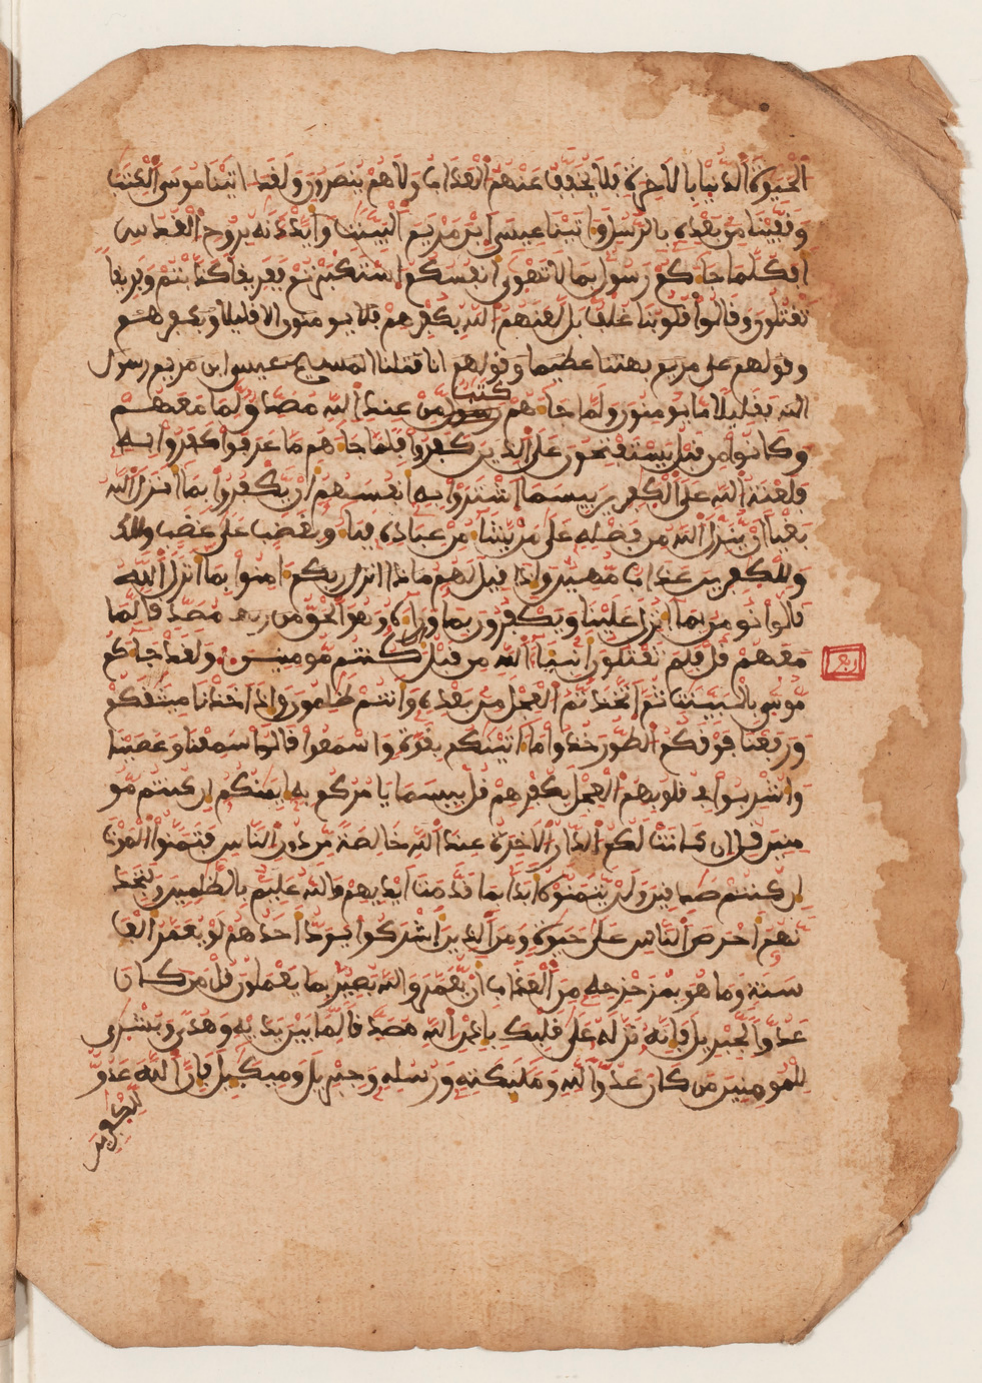 الحيوة الدنيا بالاخرة فلا يخفف عنهم العذاب ولا هم ينصرون ولقد اتينا موسى الكتب
وقفينا من بعده بالرسل واتينا عيسى ابن مريم البينت وايدنه بروح القدس
افكلما جاكم رسول بما لا تهوى انفسكم استكبرتم ففريقا كذبتم وفريقا
تقتلون وقالوا قلوبنا غلف بل لعنهم الله بكفرهم فلا يومنون الا قليلا وبكفرهم
وقولهم على مريم بهتنا عظيما وقولهم انا قتلنا المسيح عيسى ابن مريم رسول
الله فقليلا ما يومنون ولما جاهم كتب من عند الله مصدق لما معهم
وكانوا من قبل يستفتحون على الذين كفروا فلما جاهم ما عرفوا كفروا به
فلعنة الله على الكفرين بيسما اشتروا به انفسهم ان يكفروا بما انزل الله
بغيا ان ينزل الله من فضله على من يشا من عباده فباو بغضب على غضب وللك
وللكفرين عذاب مهين واذا قيل لهم ماذا انزل ربكم امنوا بما انزل الله
قالوا نومن بما انزل علينا ويكفرون بما وراه وهو الحق من ربهم مصدقا لما
معهم قل فلم تقتلون انبيا الله من قبل ان كنتم مومنين ولقد جاكم
ربع
موسى بالبينت ثم اتخذتم العجل من بعده وانتم ظلمون واذ اخذنا ميثقكم
ورفعنا فوقكم الطور خذوا ما اتينكم بقوة واسمعوا قالوا سمعنا وعصينا
واشربوا في قلوبهم العجل بكفرهم قل بيسما يامركم به ايمنكم ان كنتم مو
منين قل ان كانت لكم الدار الاخرة عند الله خالصة من دون الناس فتمنوا الموت
ان كنتم صدقين ولن يتمنوه ابدا بما قدمت ايديهم والله عليم بالظلمين ولتجد
نهم احرص الناس على حيوة ومن الذين اشركوا يود احدهم لو يعمر الف
سنة وما هو بمزحزحه من العذاب ان يعمر والله بصير بما يعملون قل من كان
عدوا لجبريل فانه نزله على قلبك باذن الله مصدقا لما بين يديه وهدى وبشرى
للمومنين من كان عدوا لله ومليكته ورسله وجبريل وميكيل فان الله عدو
للكفرين